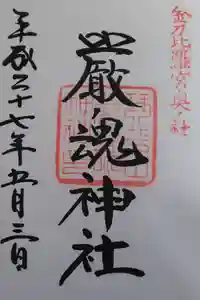 金刀比羅宮奥ノ社
厳魂神社
平成二十七年五月三日